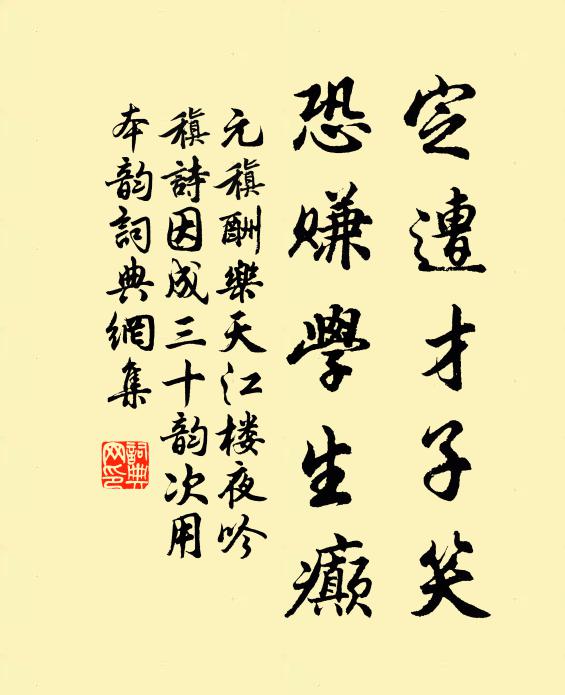 定遭才子笑
恐嫌學生癲
元稹酬樂天江楼夜吟
稹詩因成三十韵次用
本韵詞典網集
詞典网印